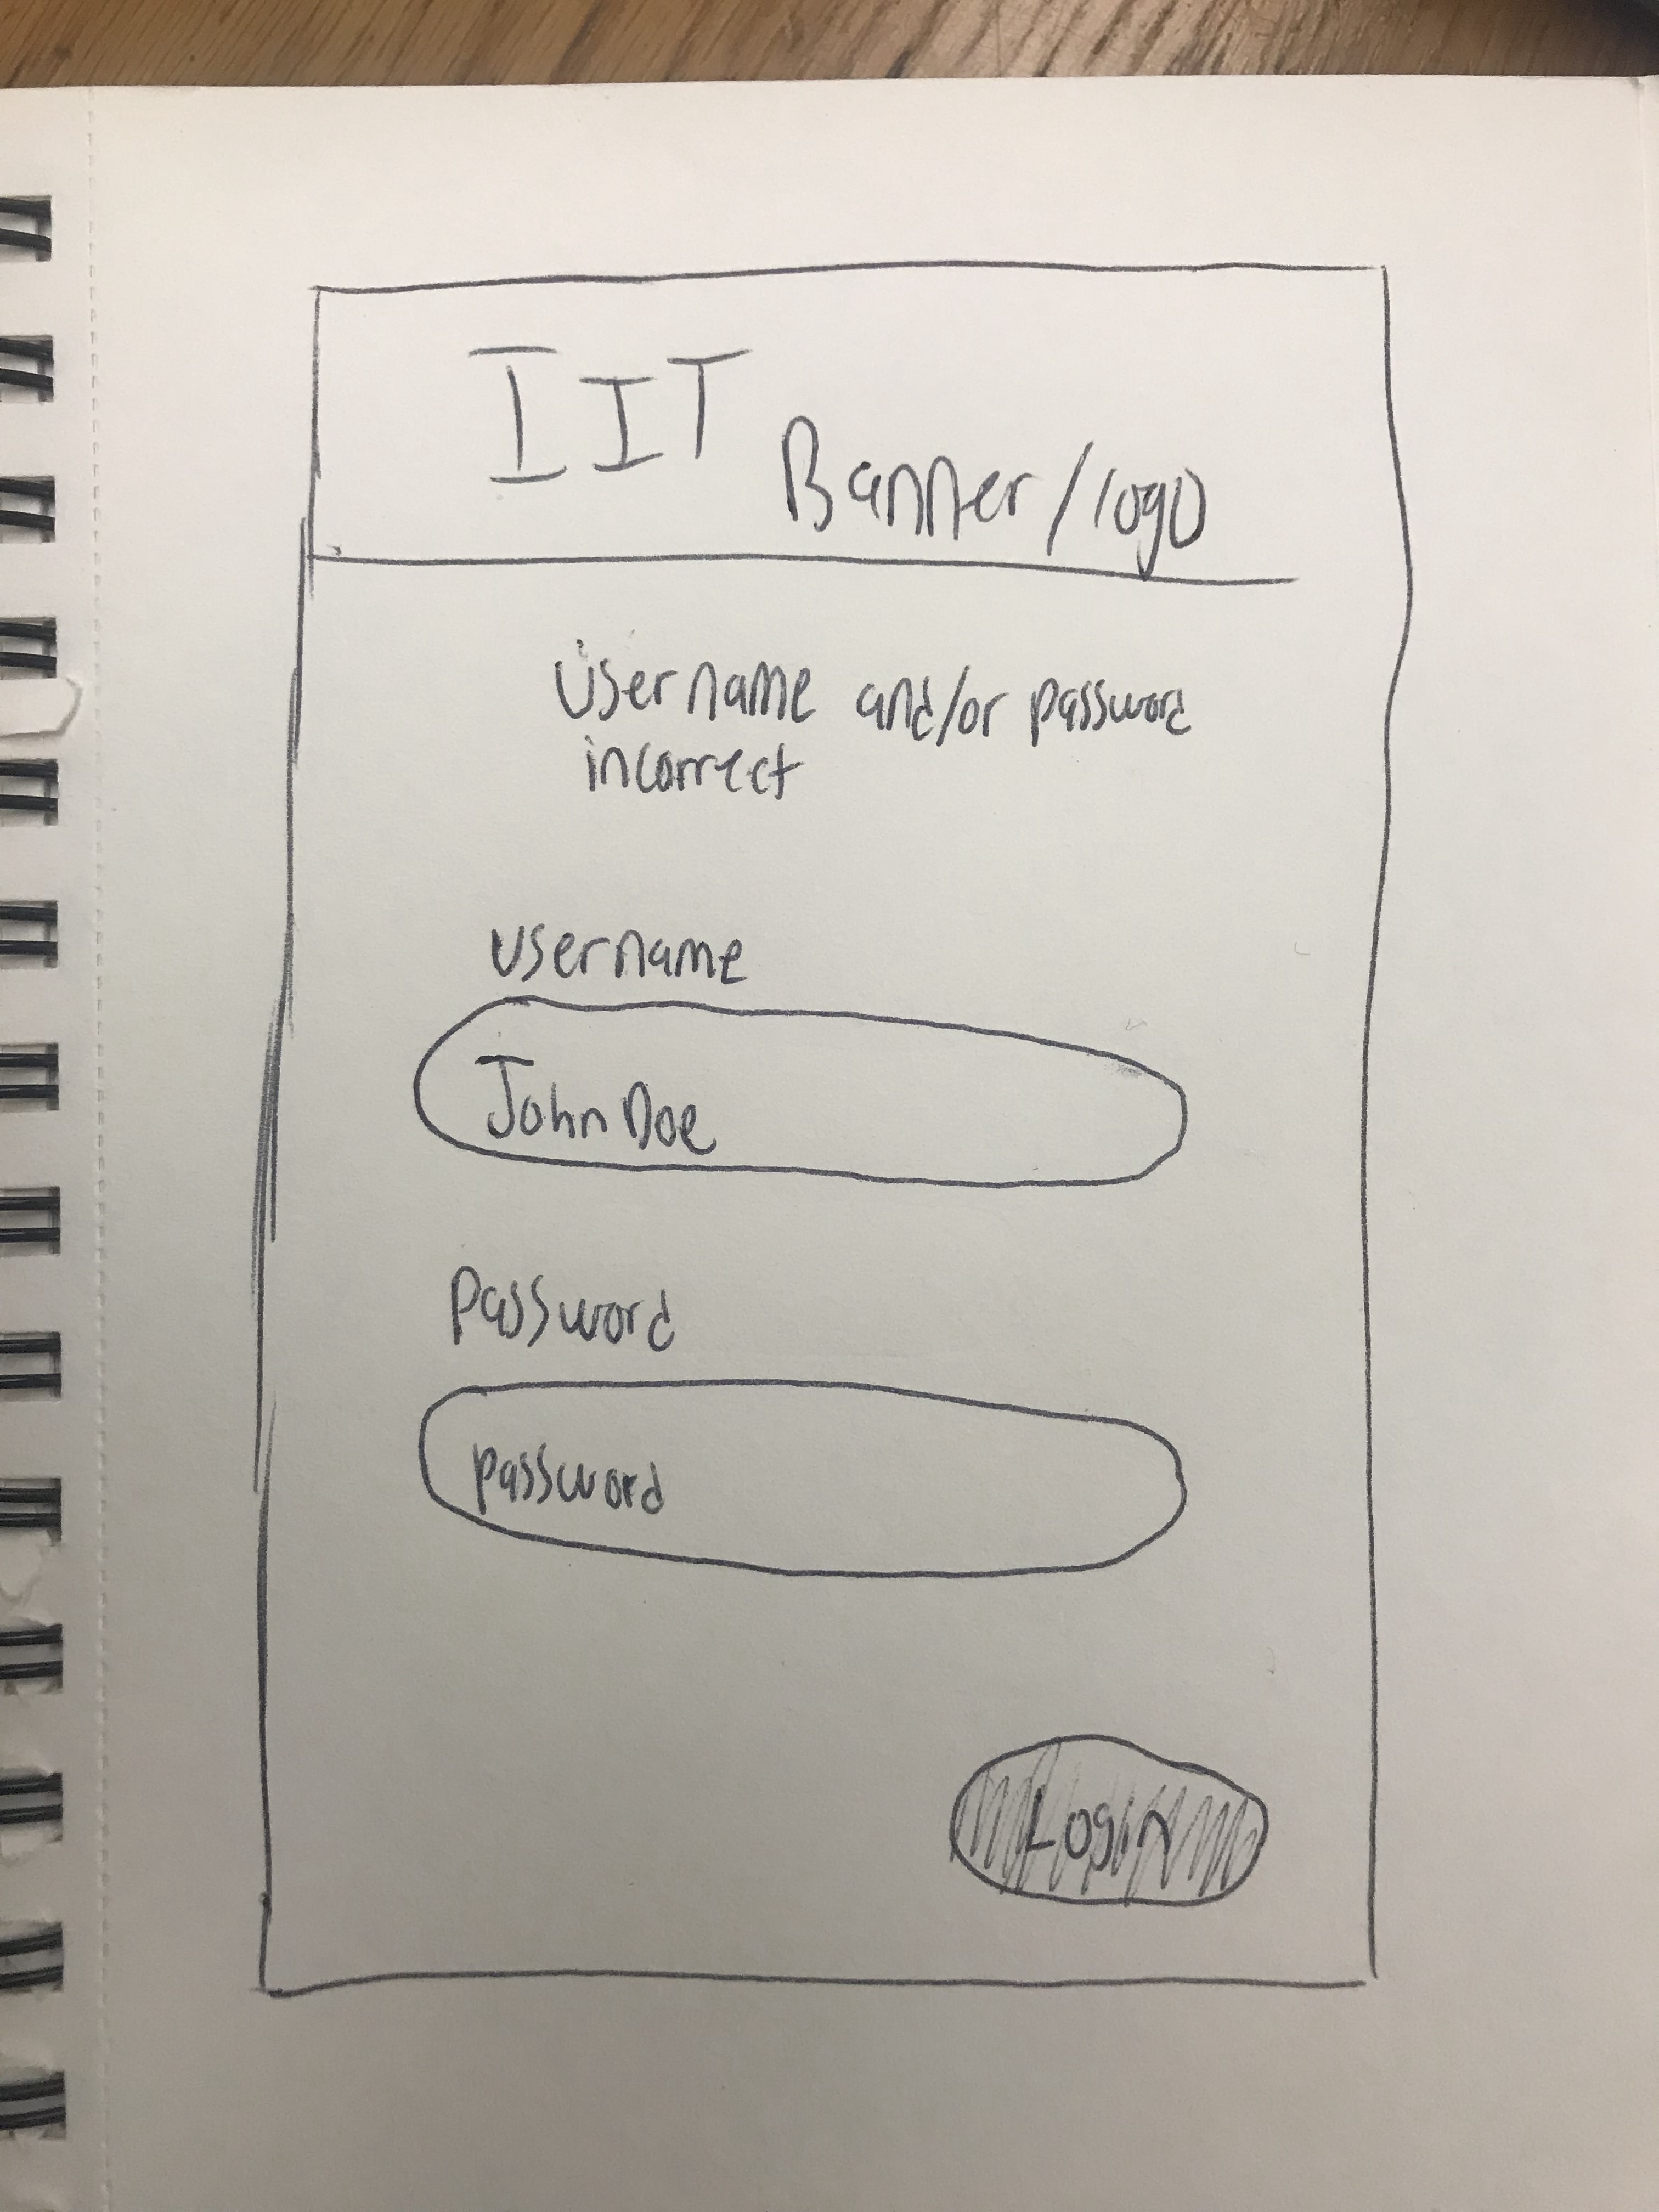 IIT
Banner/logo
Username and/or password
incorrect
username
John Doe
Password
password
Login